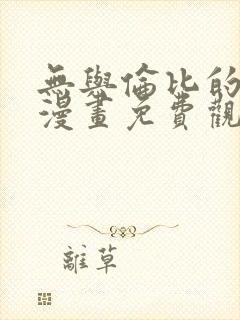 無與倫比的
漫畫免費觀
離草